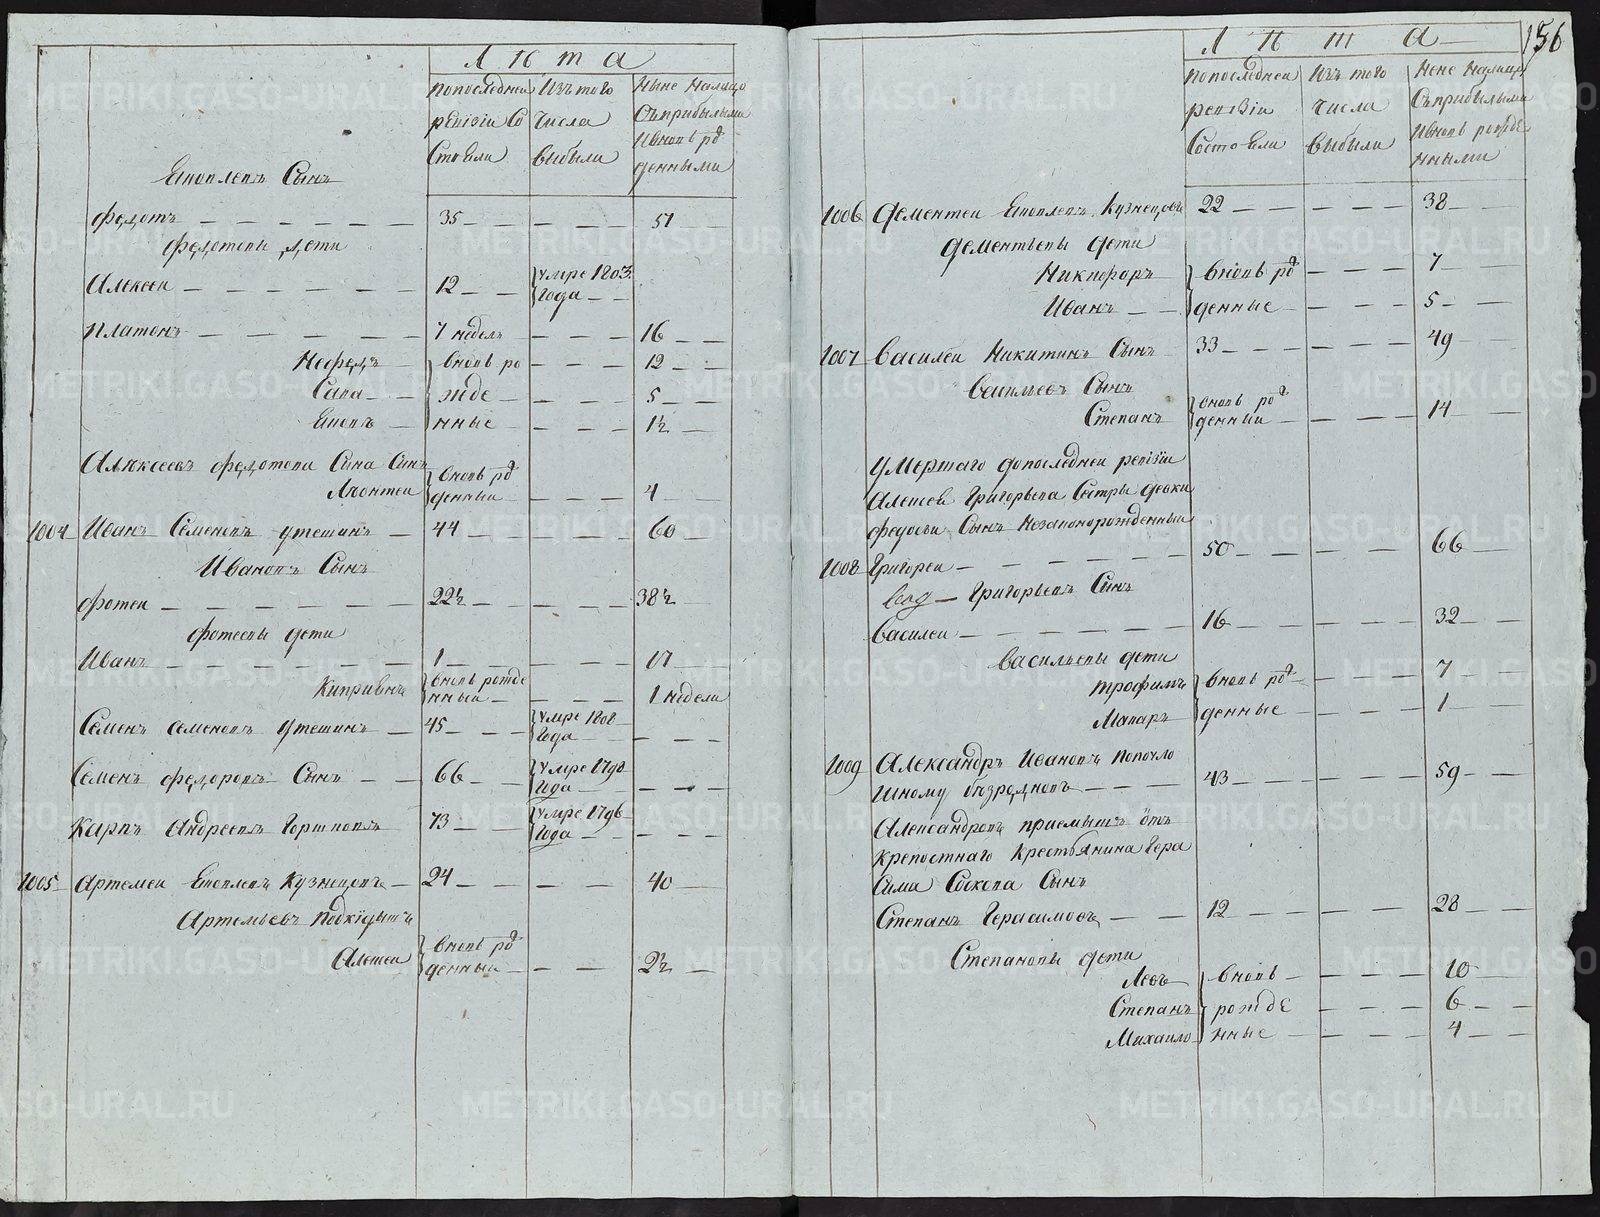 Лѣта
по последнеи ревизiи со стояли
Изъ того числа выбыли
Ныне налицо съприбылыми ивновь рож денными
Яковлевъ Сынъ
Федотъ 35 51
Федотовы дети
Алексеи 12 умре 1803 Года
Платонъ 7 недель 16
Нефедъ вновь ро 12
Сава жде 5
Яковъ нные 1½
Алексеевъ Федотова Сына Сынъ
Леонтеи вновь рож денныи 4
1004 Иванъ Семеновъ Утешинъ 44 60
Ивановъ Сынъ
Фотеи 22½ 38½
Фотеевы дети
Иванъ 1 17
Киприянъ вновь рожде нныи 1 недели
Семенъ Семеновъ Утешинъ 45 умре 1808 Года
Семенъ Федоровъ Сынъ 66 умре 1798 Года
Карпъ Андреевъ Горшковъ 73 умре 1796 Года
1005 Артемеи Яковлевъ Кузнецовъ 24 40
Артемьевъ Подкiдышъ
Алексеи вновь рож денныи 2½
156
Лѣта
по последнеи ревизiи Состояли
Изъ того числа выбыли
Ныне налицо Съприбылыми ивновь рожде нными
1006 Дементеи Яковлевъ Кузнецовъ 22 38
Дементьевы дети
Никифоръ вновь рож 7
Иванъ денные 5
1007 Василеи Никитинъ Сынъ 33 49
Васильевъ Сынъ
Степанъ вновь рож денныи 14
Умершаго допоследнеи ревизiи
Алексея Григорьева Сестры девки
Федосьи Сынъ незаконорожденныи
1008 Григореи 50 66
Григорьевъ Сынъ
Василеи 16 32
Васильевы дети
Трофимъ вновь рож 7
Макаръ денные 1
1009 Александръ Ивановъ
43 59
Александровъ приемышъ отъ
крепостнаго крестьянина Гера
сима Соскова Сынъ
Степанъ Герасимовъ 12 28
Степановы дети
Левъ вновь 10
Степанъ рожде 6
Михаило нные 4
METRIKI.GASO-URAL.RU